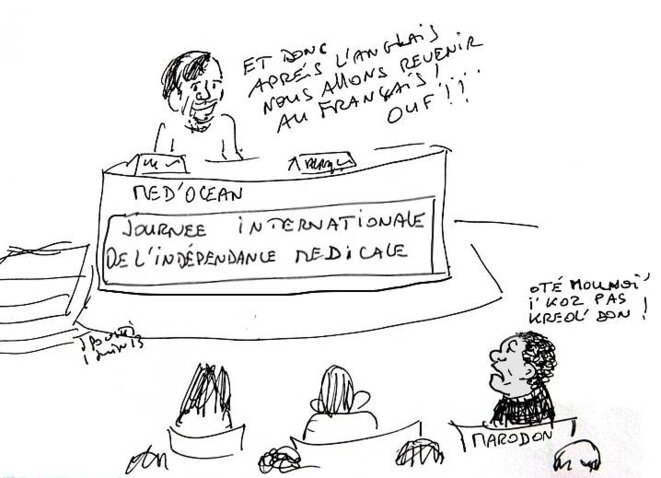 ET DONC
APRÉS L'ANGLAIS
NOUS ALLONS REVENIR
AU FRANÇAIS!
OUF!!!
MED'OCEAN
JOURNEE INTERNATIONALE
DE L'INDÉPENDANCE MEDICALE
OTÉ MOUNOI'
I' KOZ PAS
KREOL' DON!
MARODON